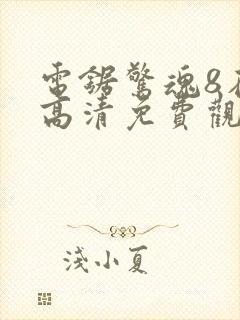 電鋸驚魂8
高清免費觀
淺小夏